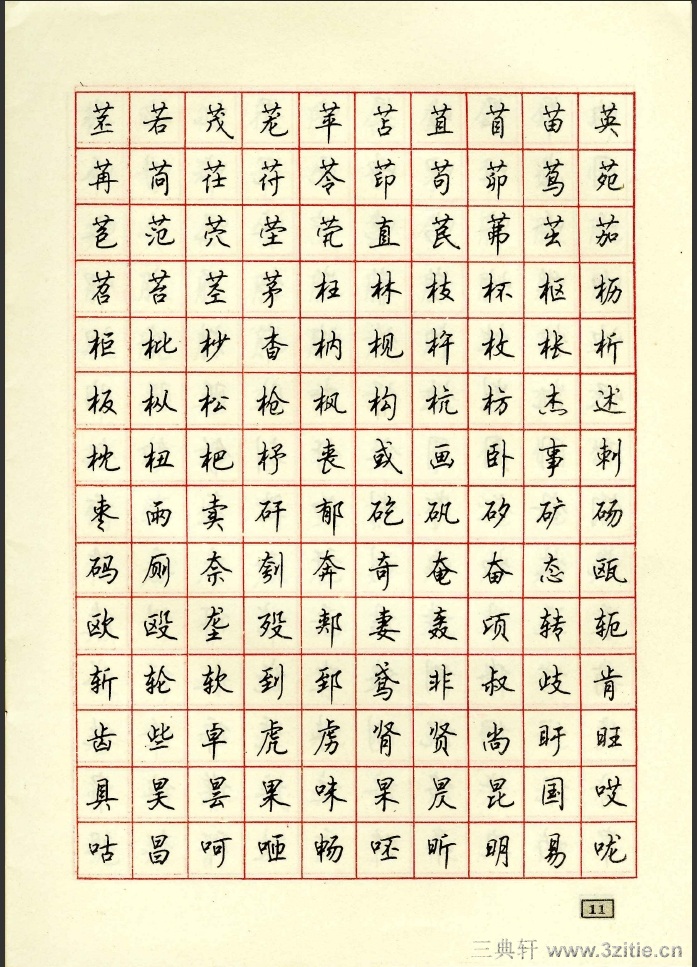 苤若茂茏苹苫苴苜苗英
苒苘茌苻苓茚苟茆茑苑
苞范茓茔茕直苠茀茁茄
苕苔茎茅枉林枝杯枢枥
柜枇杪杳枘枧杵枚枨析
板枞松枪枫构杭枋杰述
枕杻杷杼丧或画卧事刺
枣雨卖矸郁矻矾矽矿砀
码厕奈刳奔奇奄奋态瓯
欧殴垄殁郏妻轰顷转轭
斩轮软到郅鸢非叔歧肯
齿些卓虎虏肾贤尚盱旺
具昊昙果味杲昃昆国哎
咕昌呵咂畅呸昕明易咙
11
三典轩 www.3zitie.cn